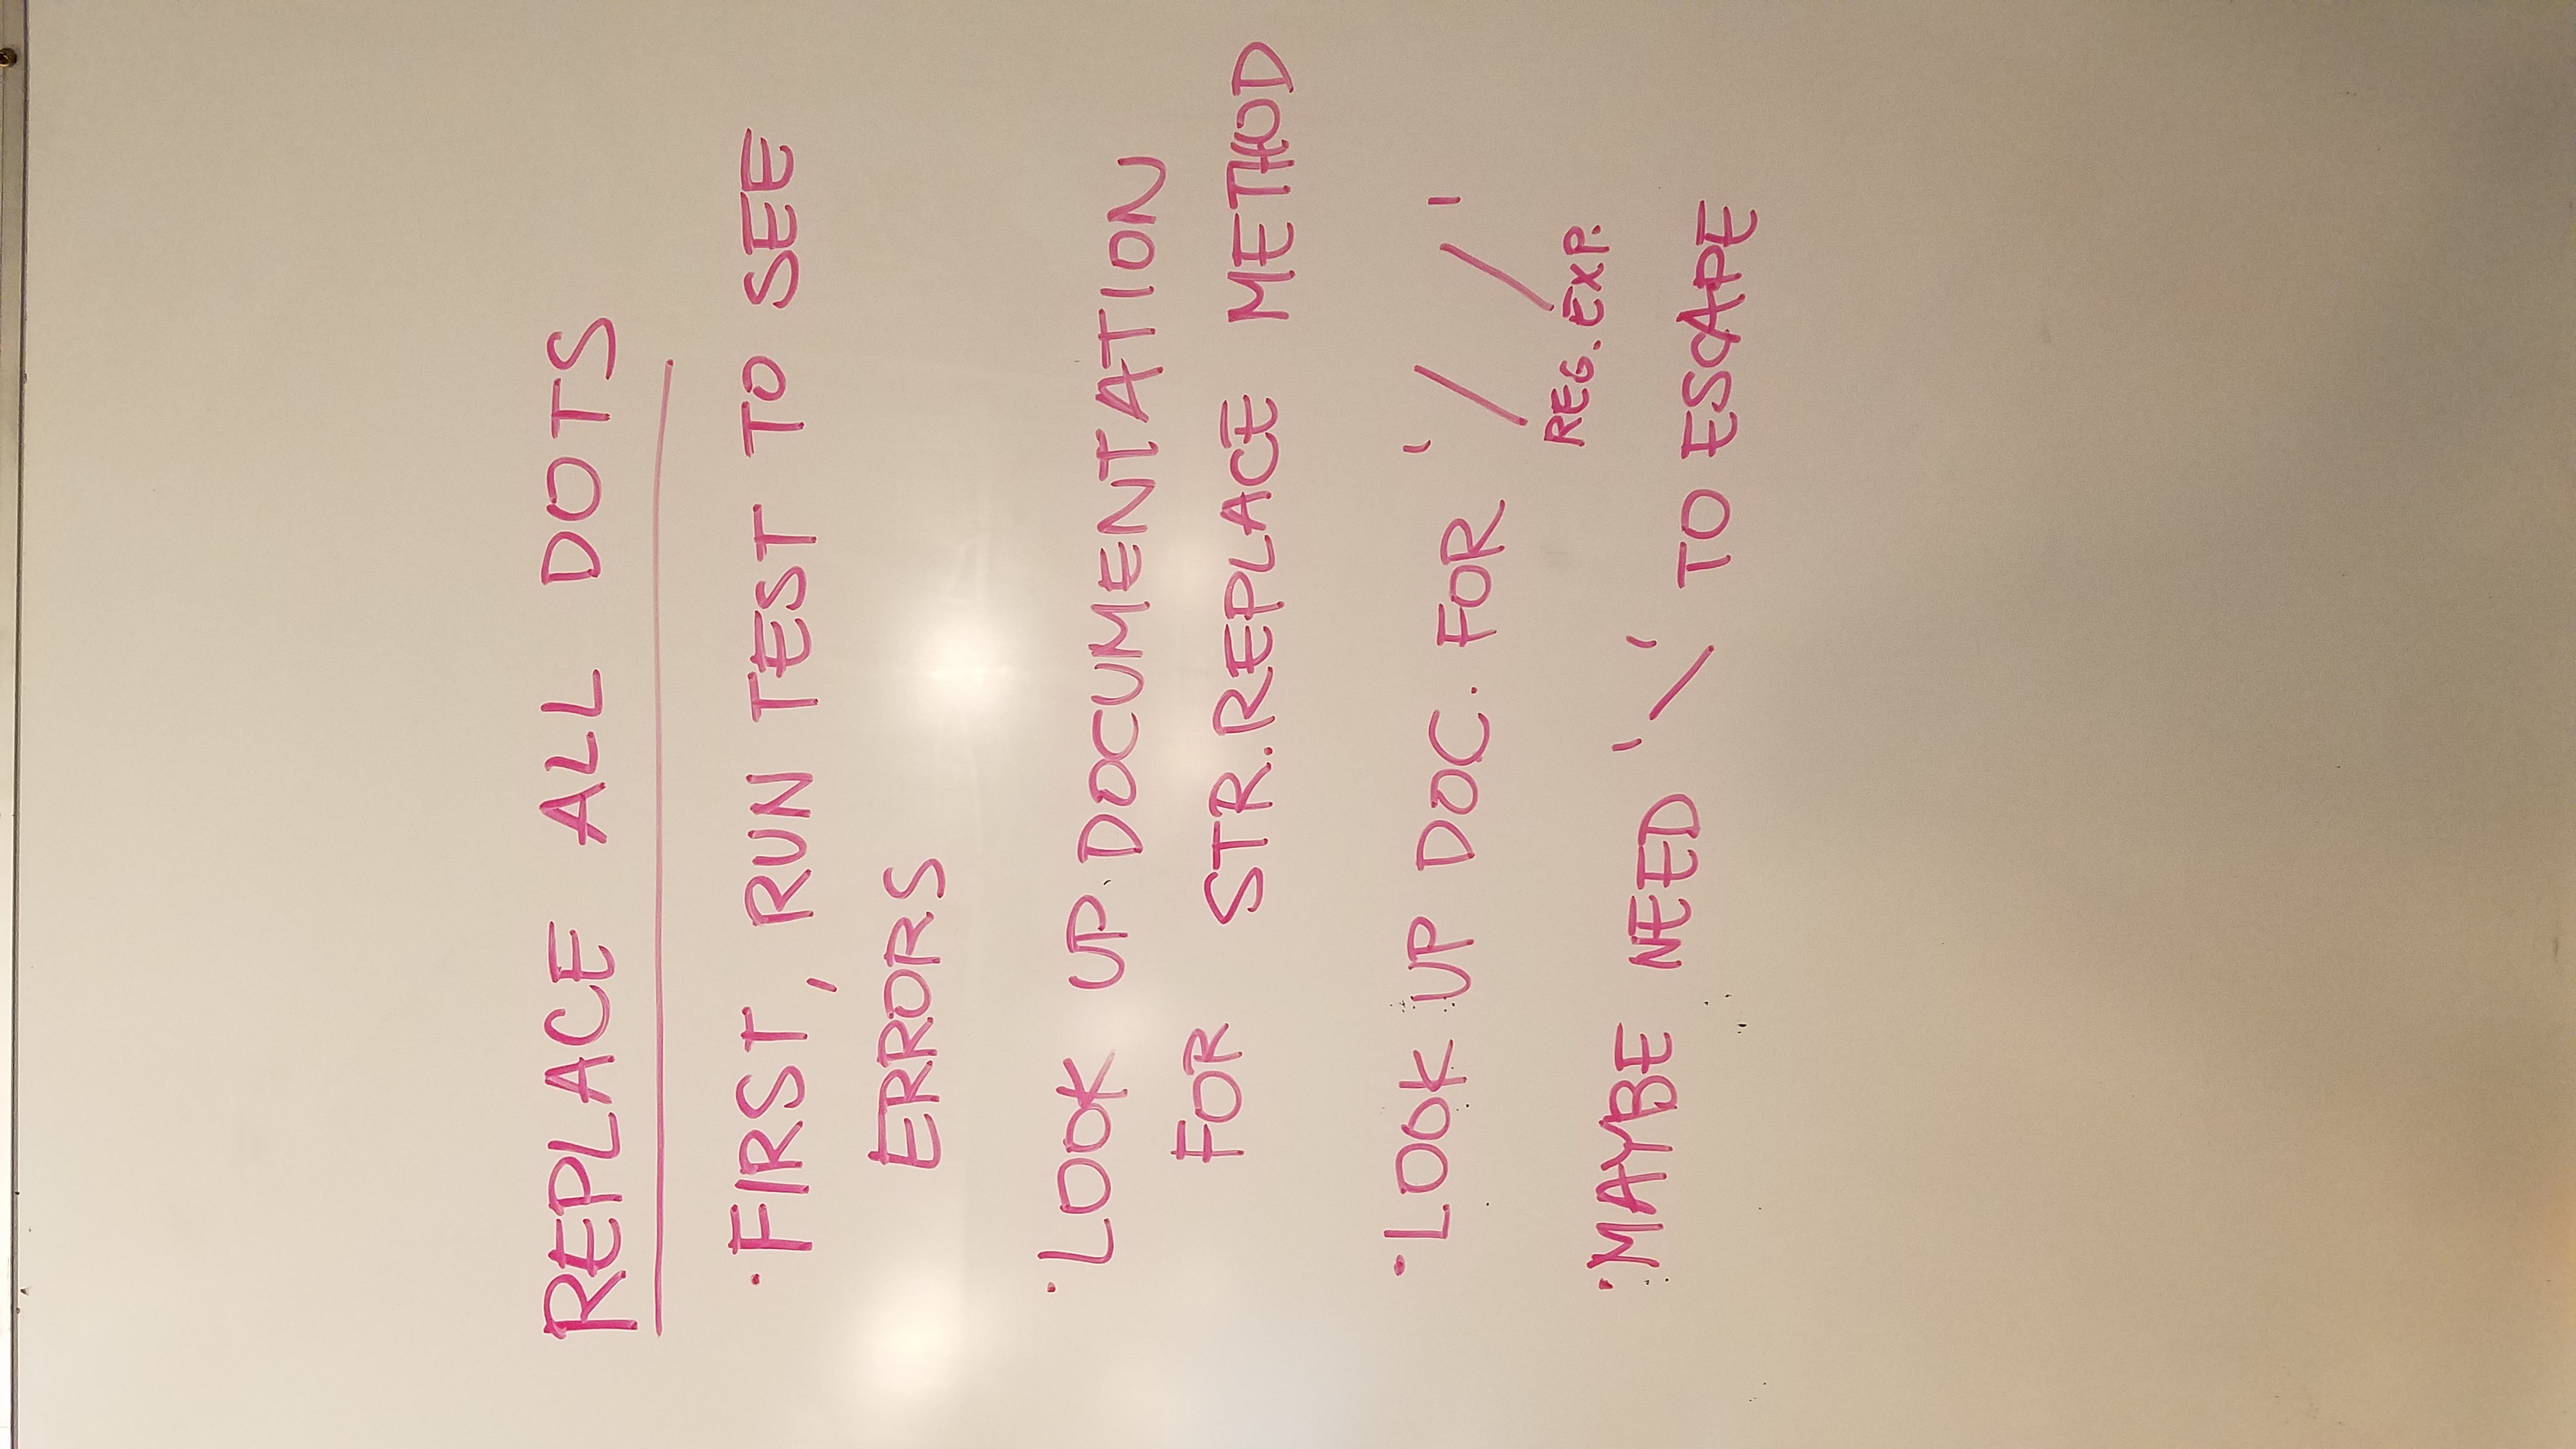 REPLACE ALL DOTS
·FIRST, RUN TEST TO SEE
ERRORS
·LOOK UP DOCUMENTATION
FOR STR.REPLACE METHOD
·LOOK UP DOC. FOR '/ /'
REG. EXP.
·MAYBE NEED '\' TO ESCAPE